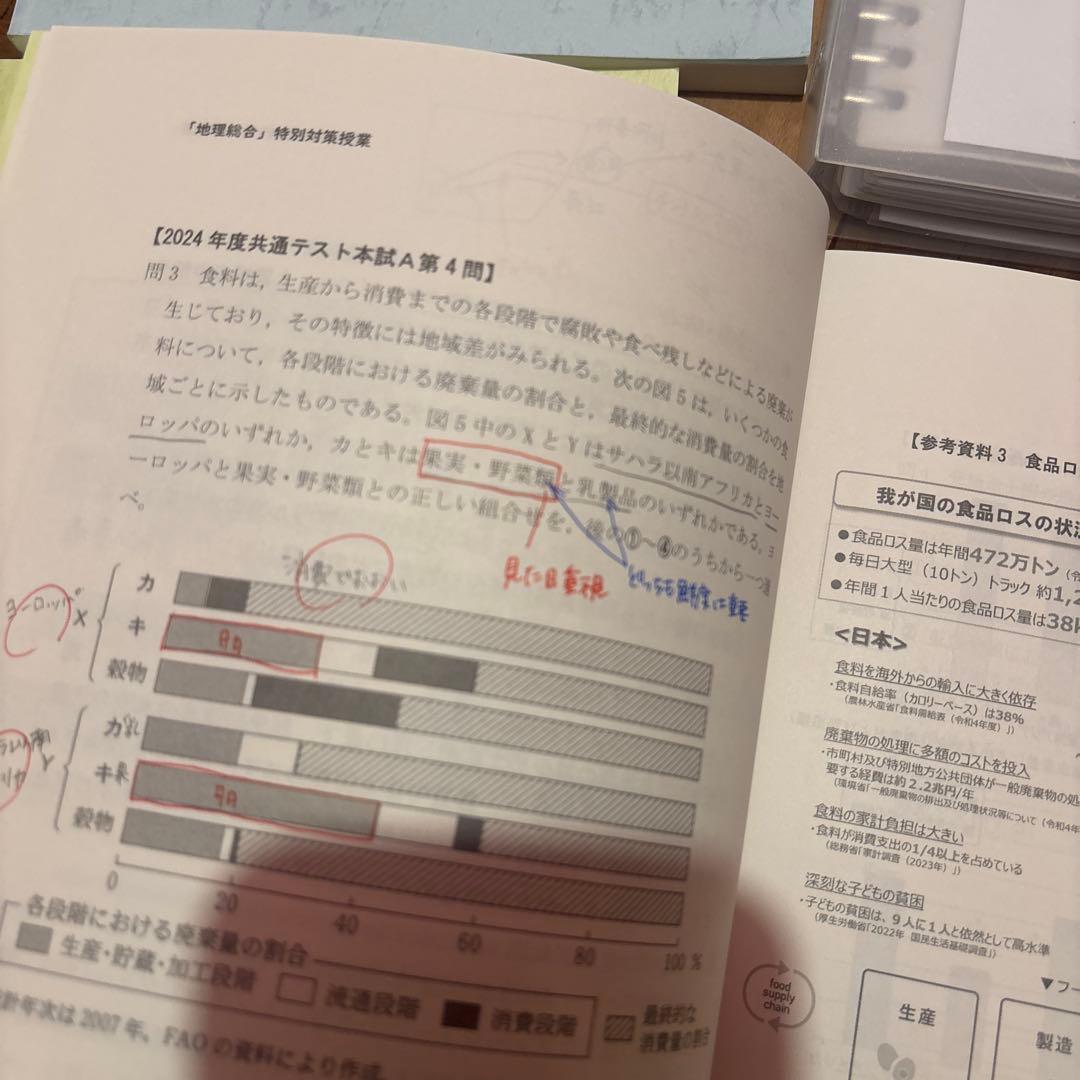 「地理総合」特別対策授業
【2024年度共通テスト本試A第4問】
問3 食料は，生産から消費までの各段階で腐敗や食べ残しなどによる廃棄が
生じており，その特徴には地域差がみられる。次の図5は，いくつかの食
料について，各段階における廃棄量の割合と，最終的な消費量の割合を地
域ごとに示したものである。図5中のXとYはサハラ以南アフリカとヨー
ロッパのいずれか，カとキは果実・野菜類と乳製品のいずれかである。ヨ
ーロッパと果実・野菜類との正しい組合せを，後の①〜④のうちから一つ選
べ。
消費でおおい
見た目重視
ヨーロッパ
X
カ
キ
穀物
Y
カ 乳
キ 果
穀物
0
20
40
60
80
100 %
各段階における廃棄量の割合
生産・貯蔵・加工段階
流通段階
消費段階
最終的な
消費量の割合
計年次は2007年。FAOの資料により作成。
【参考資料3 食品ロ
我が国の食品ロスの状況
●食品ロス量は年間472万トン（令
●毎日大型（10トン）トラック 約1,
●年間1人当たりの食品ロス量は38
<日本>
食料を海外からの輸入に大きく依存
・食料自給率（カロリーベース）は38%
（農林水産省「食料需給表（令和4年度）」）
廃棄物の処理に多額のコストを投入
・市町村及び特別地方公共団体が一般廃棄物の処
要する経費は約2.2兆円/年
（環境省「一般廃棄物の排出及び処理状況等について（令和4年
食料の家計負担は大きい
・食料が消費支出の1/4以上を占めている
（総務省「家計調査（2023年）」）
深刻な子どもの貧困
・子どもの貧困は、9人に1人と依然として高水準
（厚生労働省「2022年 国民生活基礎調査」）
▼フー
food
supply
chain
生産
製造